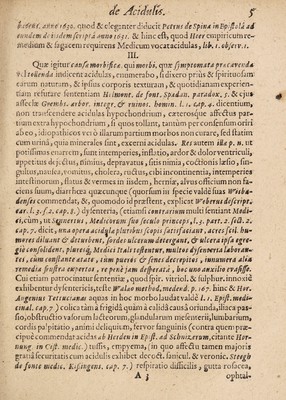 de Acidulis. 5
batens, anno 1691. quod & eleganter diducit Petrus de Spina in Epistolâ ad
eundem de iisdem scriptâ anno 1601. & hoc Quod empiricum re-
medium & sagacem requirens Medicum vocat acidulas, lib. 1. observ. 1.
III.
Quæ igitur causæ morbificæ. qui morbi, quæ symptomata procavenda
vel tollenda indicent acidulas, enumerabo, si dixero prius & spirituosam
earum naturam & ipsius corporis texturam & quotidianam experien-
tiam refutare sententiam Helmont. de font. Spadan. paradox. 5. & ejus
asseclæ Grembs. arbor. integr. & ruinos. homin. l. 1. cap. 4. dicentium,
non transcendere acidulas hypochondrium, cæterosque affectus par-
tium extra hypochondrium, si quos tollant, tantùm per consensum oriri
ab eo, idiopathicos verò illarum partium morbos non curare, sed statim
cum urina, quia minerales sint, exerni acidulas. Res autem illa p. n. ut
potissimas enarrem, sunt intemperies, instatio, ardor & dolor ventriculi,
appetitus dejectus, nimius, depravatus, sitis nimia, coctionis læsio, sin-
gultus, nausea, vomitus, cholera, ructus, cibi incontinentia, intemperies
intestinorum, flatus & vermes in iisdem, herniæ, alvus officium non fa-
ciens suum, diarrhœa quæcunque (quo summi in specie valdè suas Weba-
denses commendat, &, quomodo id præstent, explicat Weberus descript.
ear. l. 3. s. 2. cap. 1.) dysenteria, (etiamsi contrarium multi sentiant Medi-
ci; cum, ut Sennertus, Medicorum suo seculo princeps, l. 3. part. 2. sect. 2.
cap. 7. dicit, una opera acidulæ pluribus scopis satisfaciant, acres scil. hu-
mores diluant & deturbent, sordes ulcerum detergant, & ulcera ipsa egre-
giè consolident, plurimiq; Medici Itali testentur, multos dysenteria laboran-
tes, cum constante ætate, tùm pueros & senes decrepitos, innumera alia
remedia frustra expertos, re penè jam desperatâ, hoc uno auxilio evasisse.
Cui etiam patrocinatur sententiæ, quod spir. vitriol. & sulphur. innoxiè
exhibentur dysentericis, teste Walæo method. medend. p. 167. hinc & Hor.
Augenius Tettucianas aquas in hoc morbo laudat valdè l. 1. Epist. medi-
cinal. cap. 7.) colica tàm à frigida quàm à calida causa oriunda, iliaca pas-
sio, obstructio valorum lacteorum, glandularum mesenterii, lumbarium,
cordis palpitatio, animi deliquium, fervor sanguinis (contra quem præ-
cipuè commendat acidas ab Herden in Epist. ad Schnizerum, citante Hor-
nung. in Cist. medic.) tussis, empyema, (in quo affectu tamen majoris
gratiâ securitatis cum acidulis exhibet decoct. sanicul. & veronic. Steegh
de fonte medic. Kißingens. cap. 7.) respiratio difficilis, gutta rosacea,
A 3 ophtal-